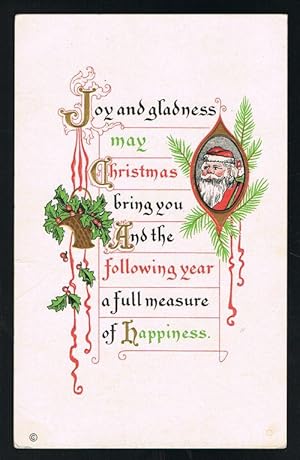 Joy and gladness
may
Christmas
bring you
And the
following year
a full measure
of Happiness.
©